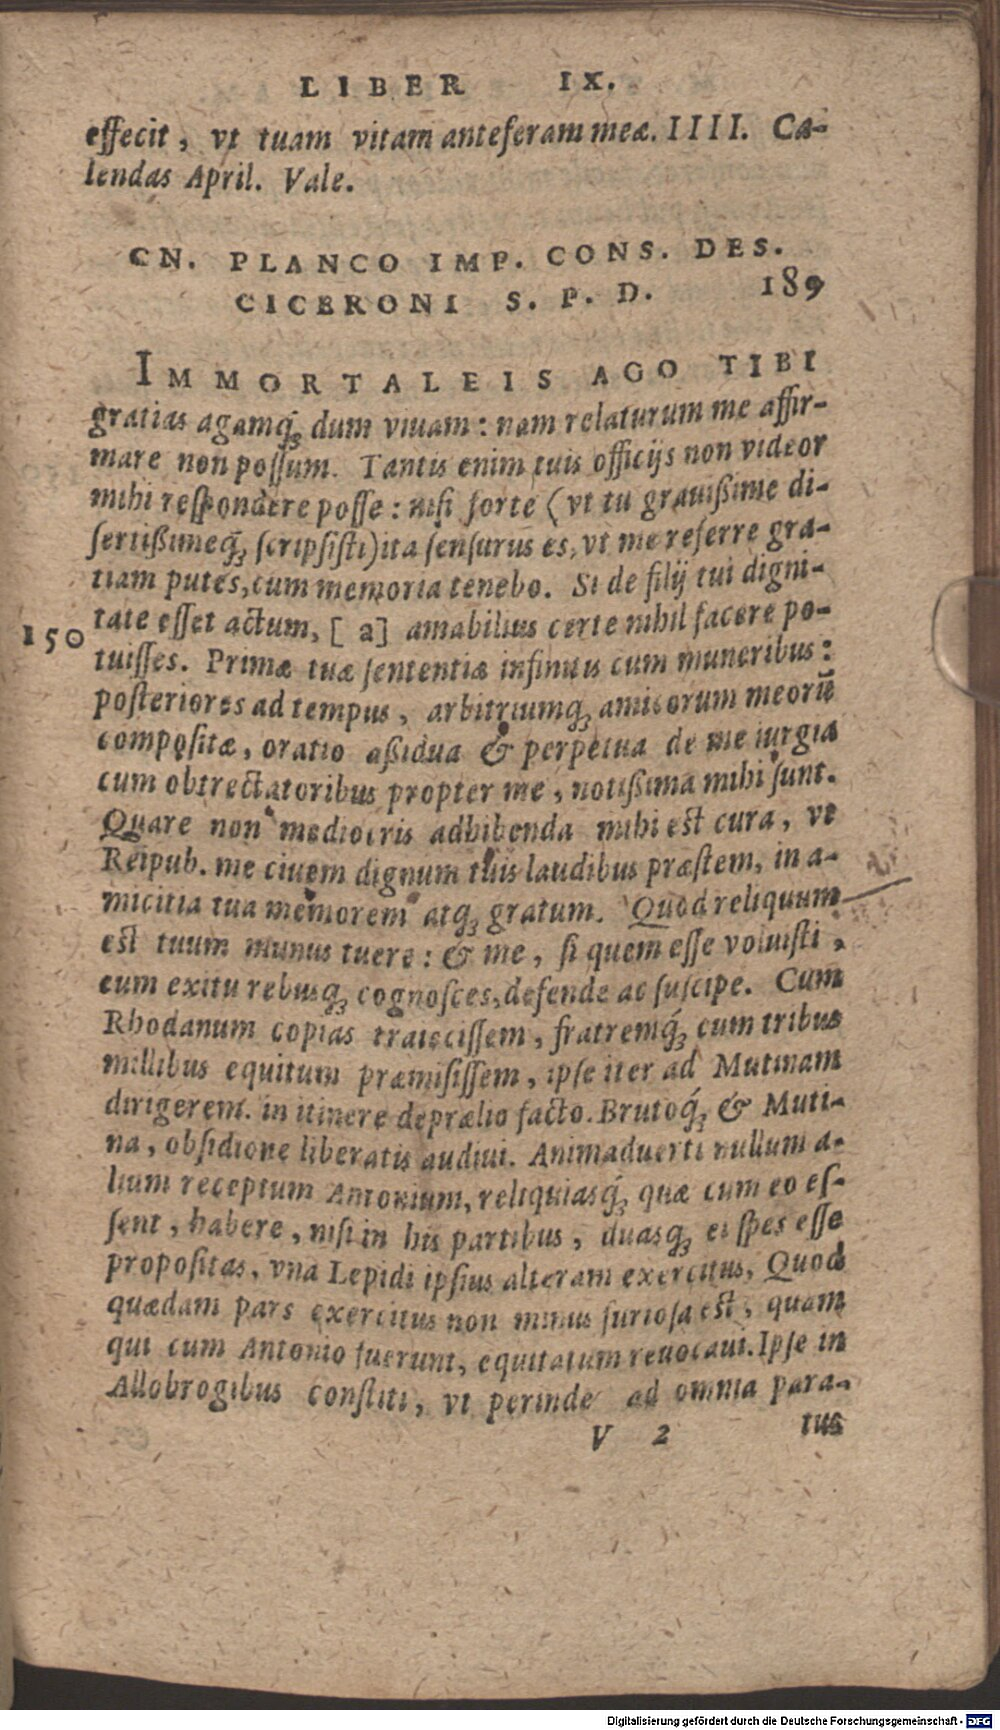 LIBER IX.
effecit, vt tuam vitam anteferam meæ. IIII. Ca-
lendas April. Vale.
CN. PLANCO IMP. CONS. DES.
CICERONI S. P. D. 189
IMMORTALEIS AGO TIBI
gratias agamq́; dum viuam: nam relaturum me affir-
mare non possum. Tantis enim tuis officijs non videor
mihi respondere posse: nisi forte (vt tu grauißime di-
sertißimeq́; scripsisti) ita sensurus es, vt me referre gra-
tiam putes, cum memoria tenebo. Si de filij tui digni-
150 tate esset actum, [a] amabilius certe nihil facere po-
tuisses. Primæ tuæ sententiæ infinitis cum muneribus:
posteriores ad tempus, arbitriumq; amicorum meorũ
compositæ, oratio aßidua & perpetua de me iurgia
cum obtrectatoribus propter me, notißima mihi sunt.
Quare non mediocris adhibenda mihi est cura, vt
Reipub. me ciuem dignum tuis laudibus præstem, in a-
micitia tua memorem atq; gratum. Quod reliquum
est tuum munus tuere: & me, si quem esse voluisti,
eum exitu rebusq; cognosces, defende ac suscipe. Cum
Rhodanum copias traiecissem, fratremq́; cum tribus
millibus equitum præmisissem, ipse iter ad Mutinam
dirigerem. in itinere de prælio facto. Brutoq́; & Muti-
na, obsidione liberatis audiui. Animaduerti nullum a-
lium receptum Antonium, reliquiasq́; quæ cum eo es-
sent, habere, nisi in his partibus, duasq; ei spes esse
propositas, vna Lepidi ipsius alteram exercitus, Quod
quædam pars exercitus non minus furiosa est, quam
qui cum Antonio fuerunt, equitatum reuocaui. Ipse in
Allobrogibus constiti, vt perinde ad omnia para-
V 2 tus
Digitalisierung gefördert durch die Deutsche Forschungsgemeinschaft - DFG